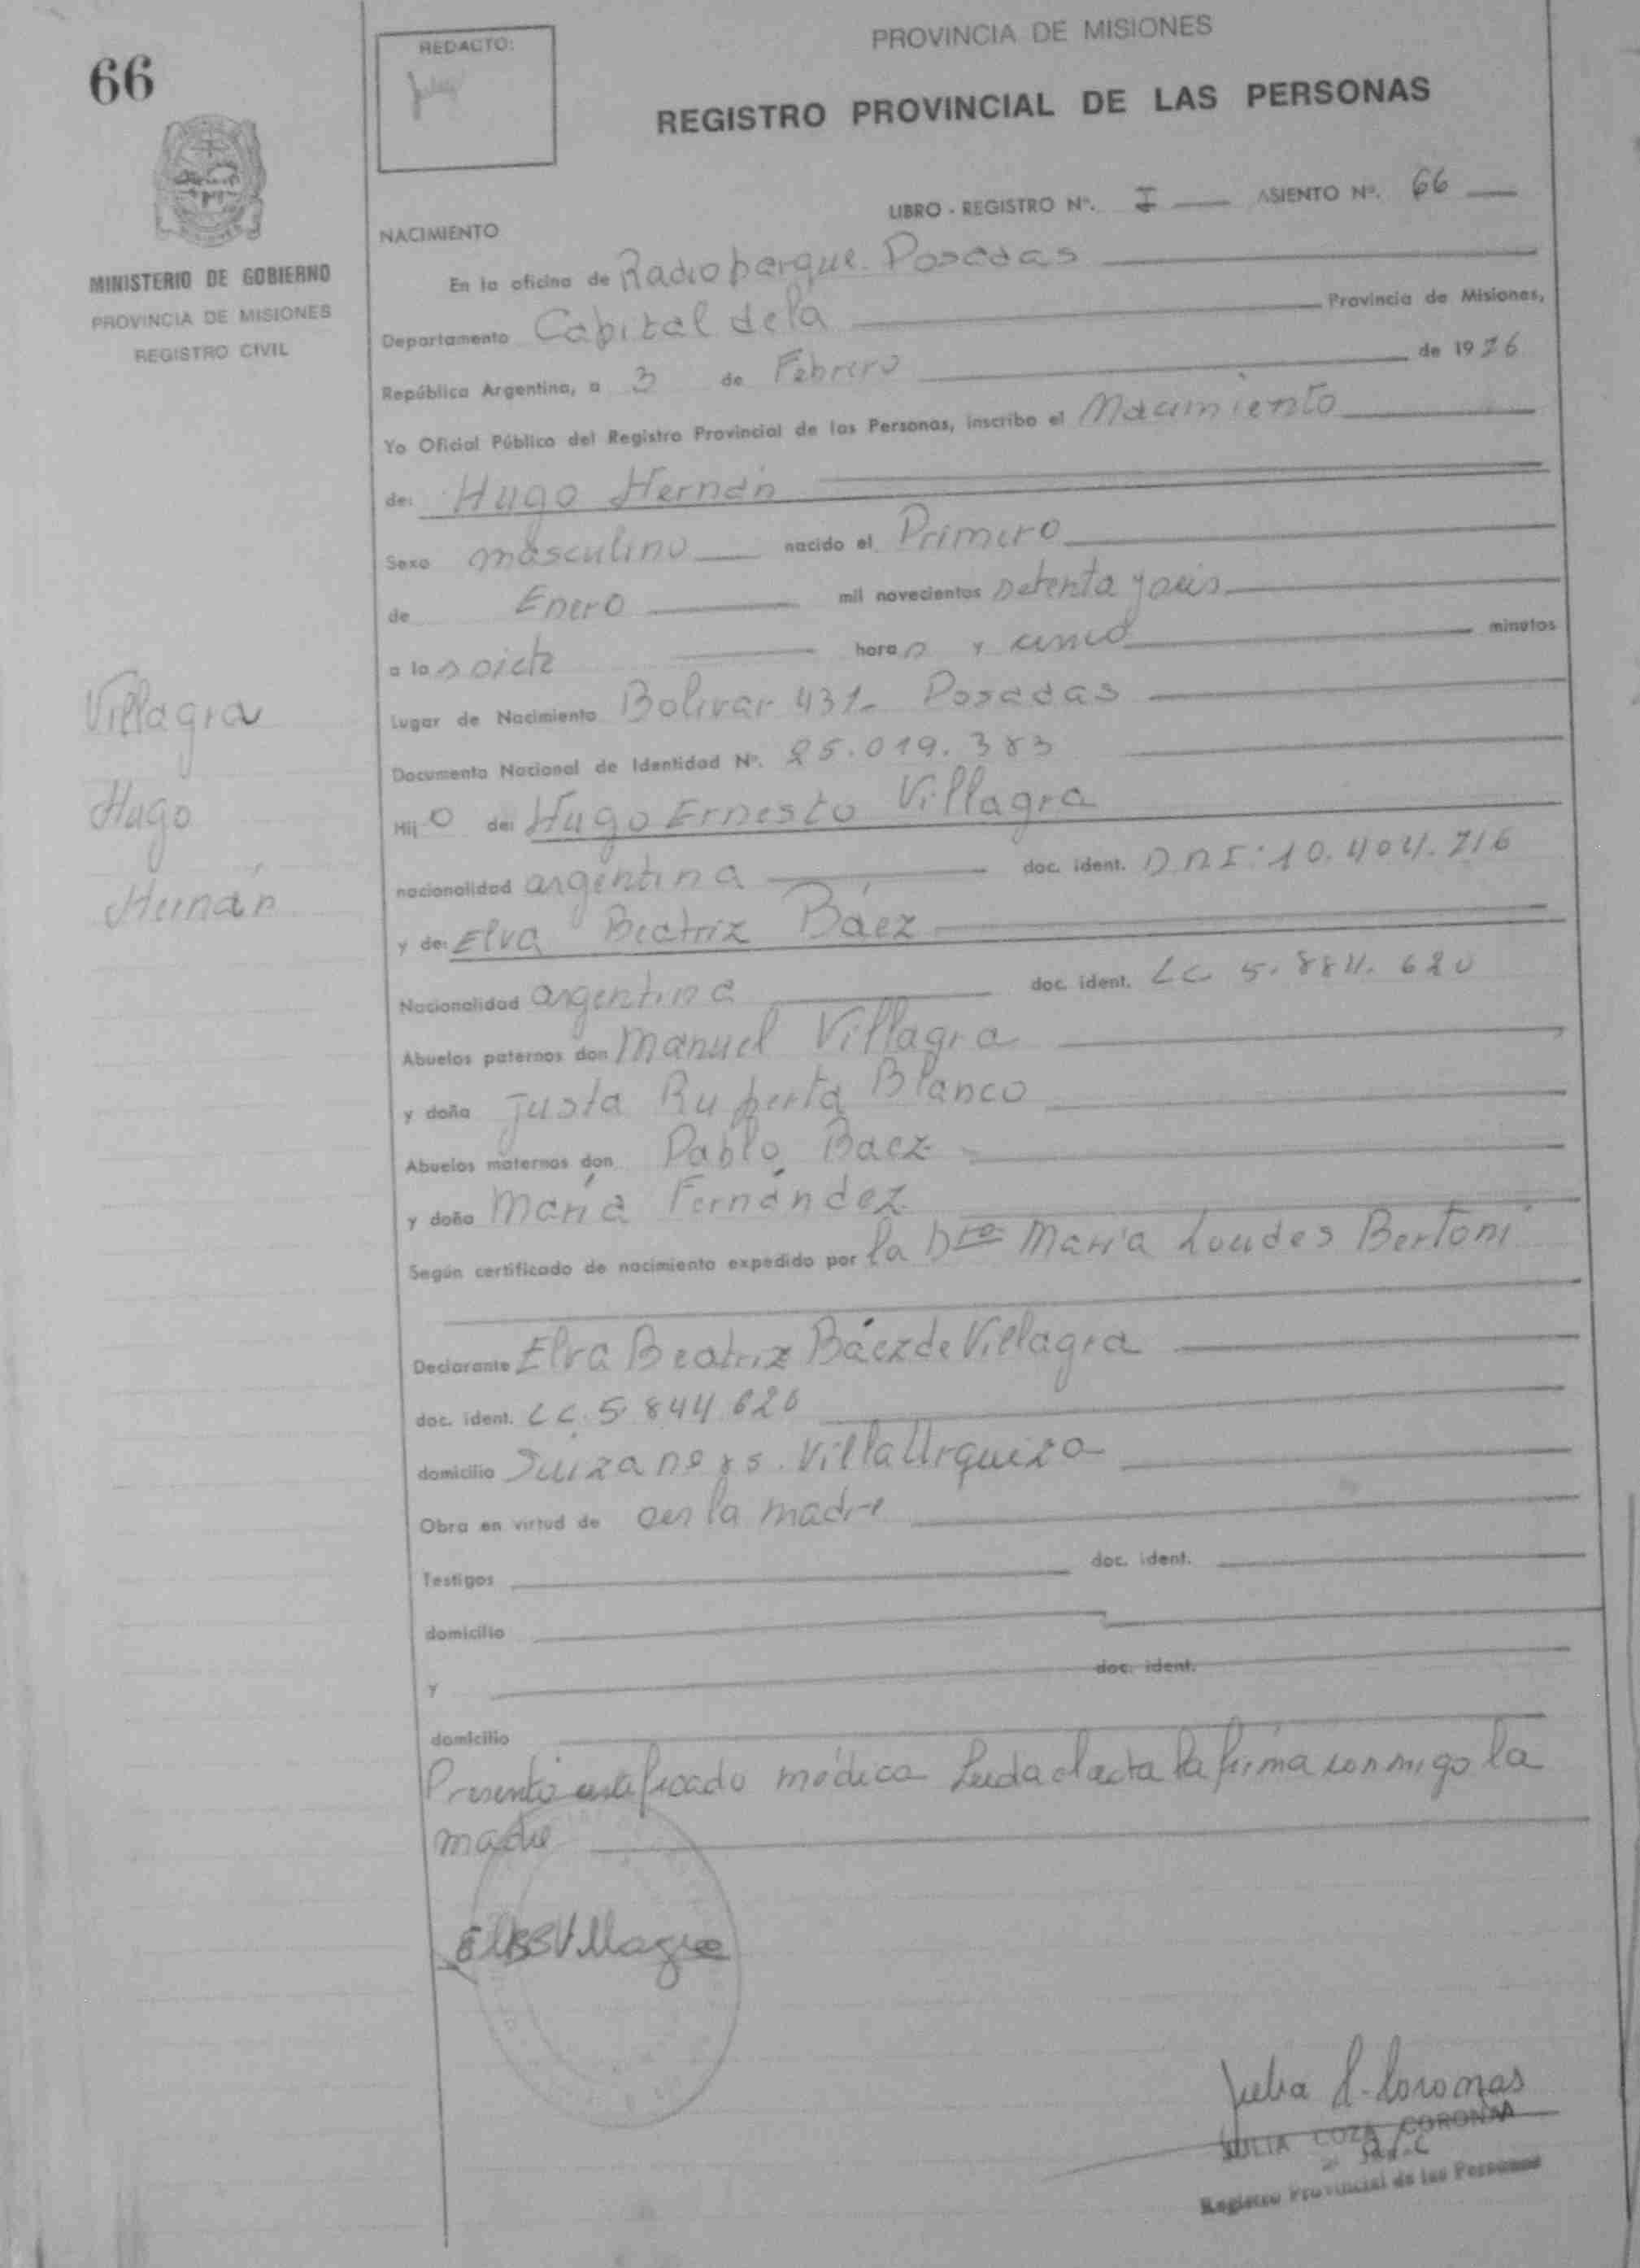 66
REDACTO:
PROVINCIA DE MISIONES
REGISTRO PROVINCIAL DE LAS PERSONAS
MINISTERIO DE GOBIERNO
PROVINCIA DE MISIONES
REGISTRO CIVIL
LIBRO - REGISTRO Nº. I ASIENTO Nº. 66
NACIMIENTO
En la oficina de Radioparque Posadas
Departamento Capital de la Provincia de Misiones,
República Argentina, a 3 de Febrero de 1976
Yo Oficial Público del Registro Provincial de las Personas, inscribo el Nacimiento
de: Hugo Hernán
Sexo masculino nacido el Primero
de Enero mil novecientos setenta y seis
a las siete horas y cinco minutos
Villagra
Hugo
Hernán
Lugar de Nacimiento Bolivar 431- Posadas
Documento Nacional de Identidad Nº. 25.019.383
Hijo de: Hugo Ernesto Villagra
nacionalidad argentina doc. ident. DNI: 10.404.716
y de: Elva Beatriz Báez
Nacionalidad argentina doc. ident. LC 5.884.620
Abuelos paternos don Manuel Villagra
y doña Justa Ruperta Blanco
Abuelos maternos don Pablo Baez
y doña María Fernández
Según certificado de nacimiento expedido por la Dra María Loudes Bertoni
Declarante Elva Beatriz Báez de Villagra
doc. ident. LC. 5.844.620
domicilio Suiza nº 85. Villa Urquiza
Obra en virtud de ser la madre
Testigos doc. ident.
domicilio
y doc. ident.
domicilio
Presentó certificado médico Leida el acta la firma conmigo la
madre
Villagra
JULIA COZA CORONA
Registro Provincial de las Personas